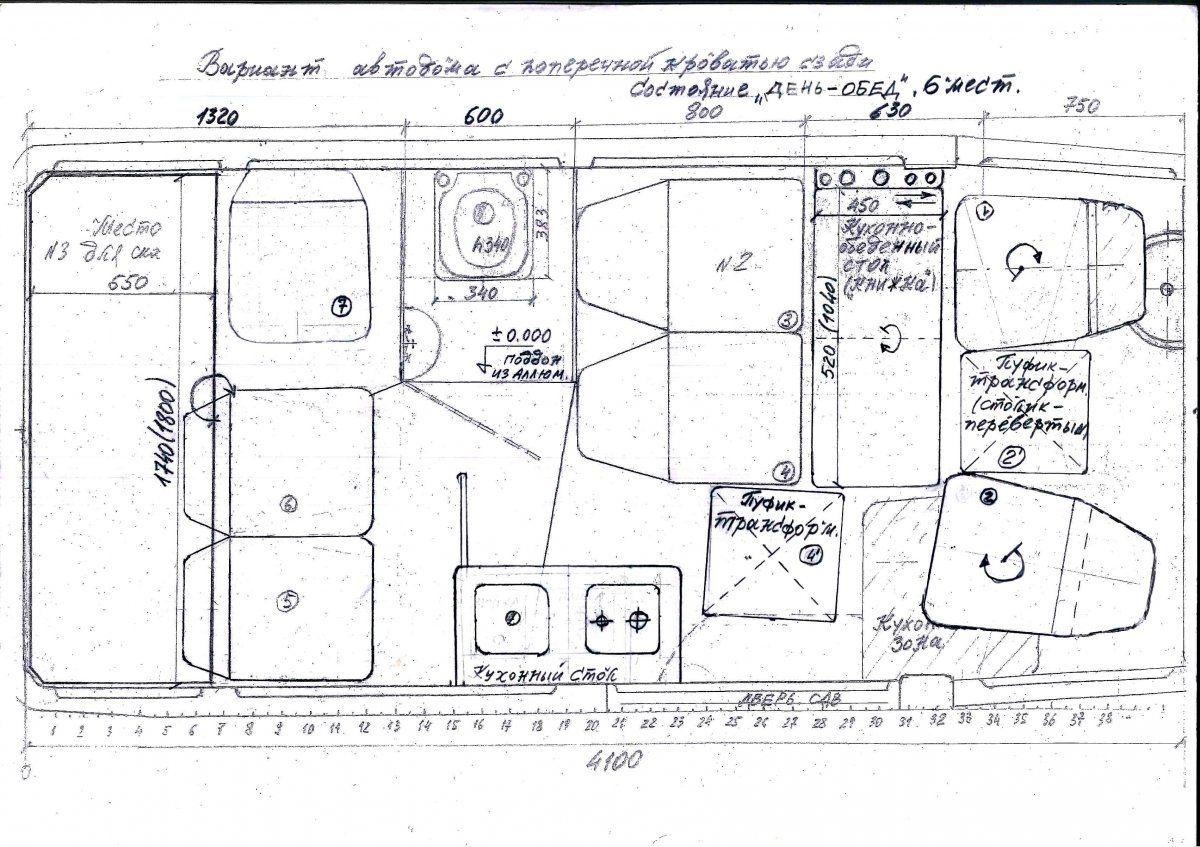 Вариант автодома с поперечной кроватью сзади
Состояние „ДЕНЬ-ОБЕД", 6 мест.
1320
600
800
630
750
Место
№3 для сна
650
7
h340
383
340
±0.000
поддон
из аллюм.
№2
3
4
450
Кухонно-
обеденный
стол
("книжка")
520 (1040)
1
Пуфик-
трансформ.
(столик-
перевертыш)
2'
2
1740(1800)
6
5
Пуфик-
трансформ.
4'
Кухонный стол
Кухон
зона
ДВЕРЬ СДВ
1 2 3 4 5 6 7 8 9 10 11 12 13 14 15 16 17 18 19 20 21 22 23 24 25 26 27 28 29 30 31 32 33 34 35 36 37 38
4100
0